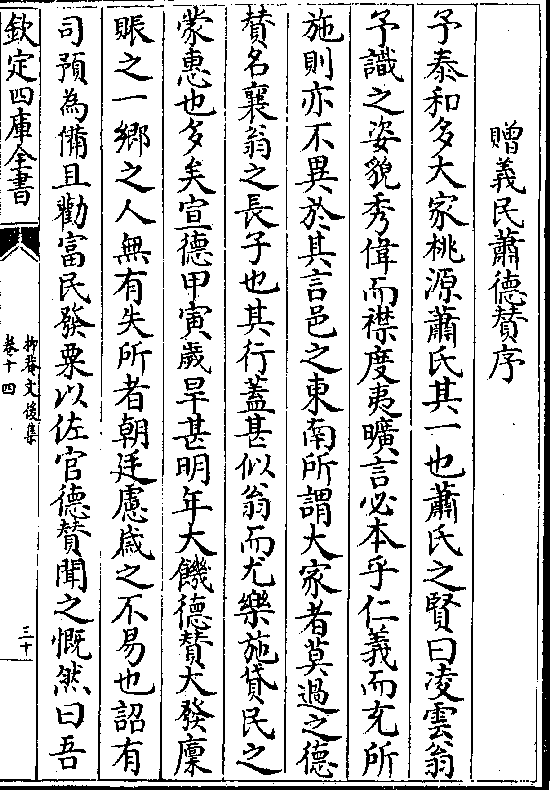 贈義民蕭德賛序
予泰和多大家桃源蕭氏其一也蕭氏之賢曰凌雲翁
予識之姿貌秀偉而襟度夷曠言必本乎仁義而充所
施則亦不異於其言邑之東南所謂大家者莫過之德
賛名襄翁之長子也其行蓋甚似翁而尤樂施貸民之
蒙惠也多矣宣德甲寅歲旱甚明年大饑德賛大發廩
賑之一鄉之人無有失所者朝廷慮歲之不易也詔有
司預為備且勸富民發粟以佐官德賛聞之慨然曰吾
欽定四庫全書
抑菴文後集
卷十四
三十